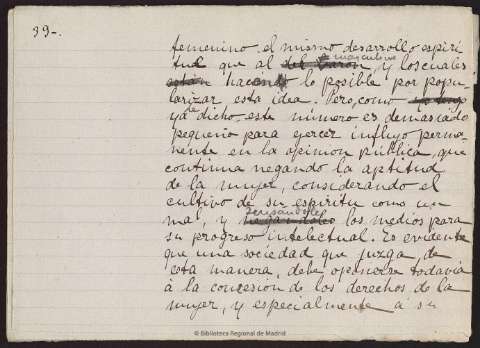 39-.
femenino el mismo desarrollo espiri
tual que al del varon masculino, y los cuales
están hacen lo posible por popu-
larizar esta idea. Pero, como
ya dicho, este número es demasiado
pequeño para ejercer influjo perma-
nente en la opinion pública, que
continua negando la aptitud
de la mujer, considerando el
cultivo de su espíritu como
y los medios para
su progreso intelectual. Es evidente
que una sociedad que juzga, de
esta manera, debe oponerse todavia
á la concesion de los derechos de la
mujer, y especialmente á su
© Biblioteca Regional de Madrid